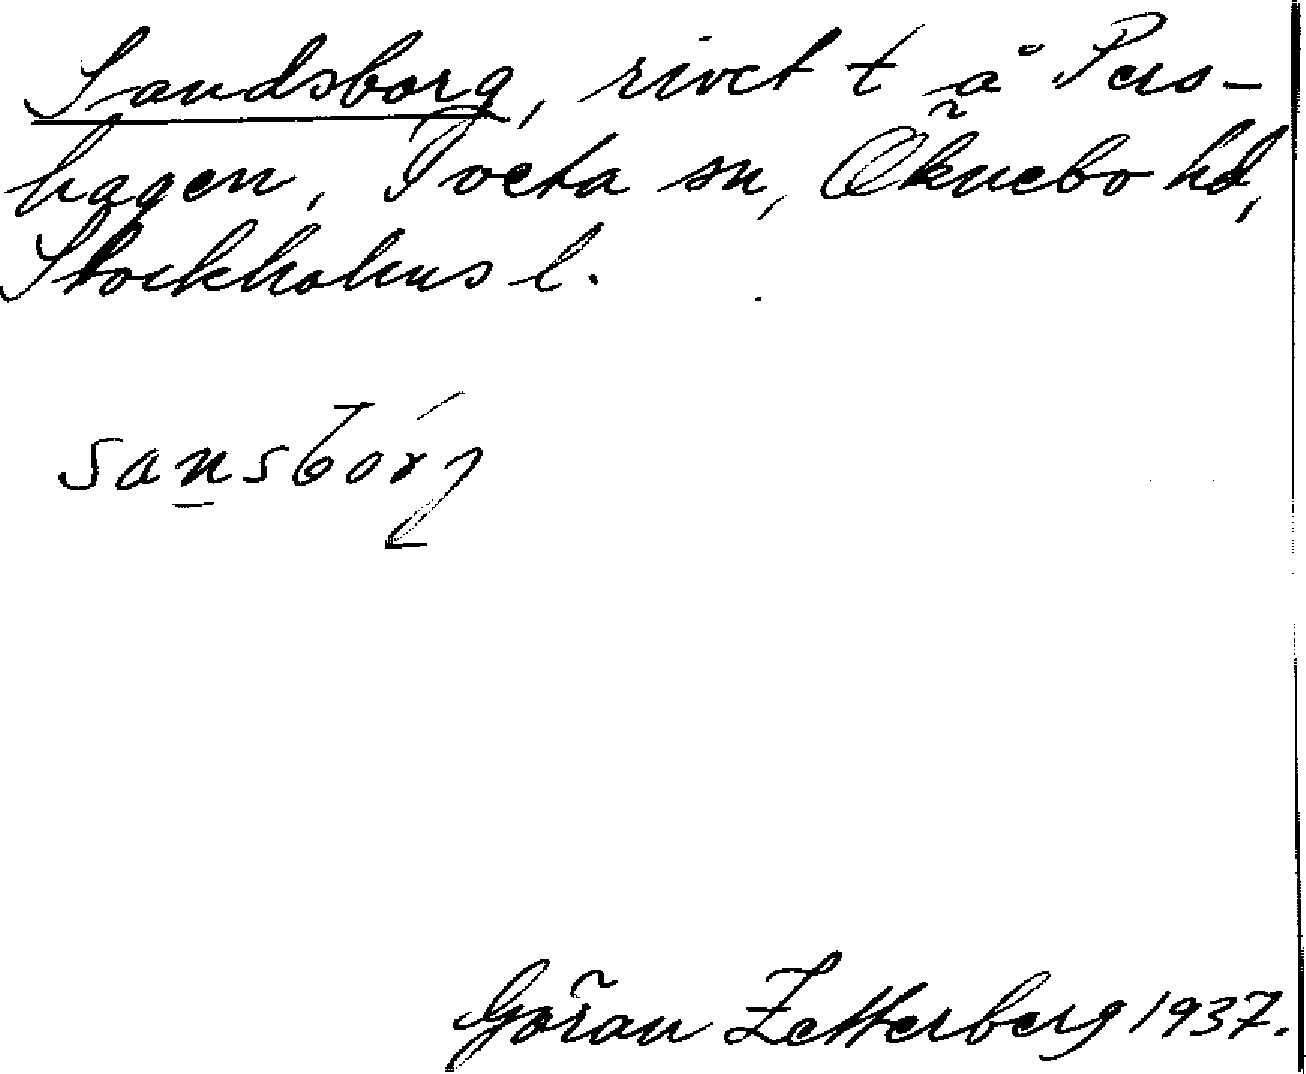 Sandsborg, rivet t å Pers-
hagen, Tveta sn, Öknebo hd,
Stockholms l.
sansborg
Göran Zetterberg 1937.